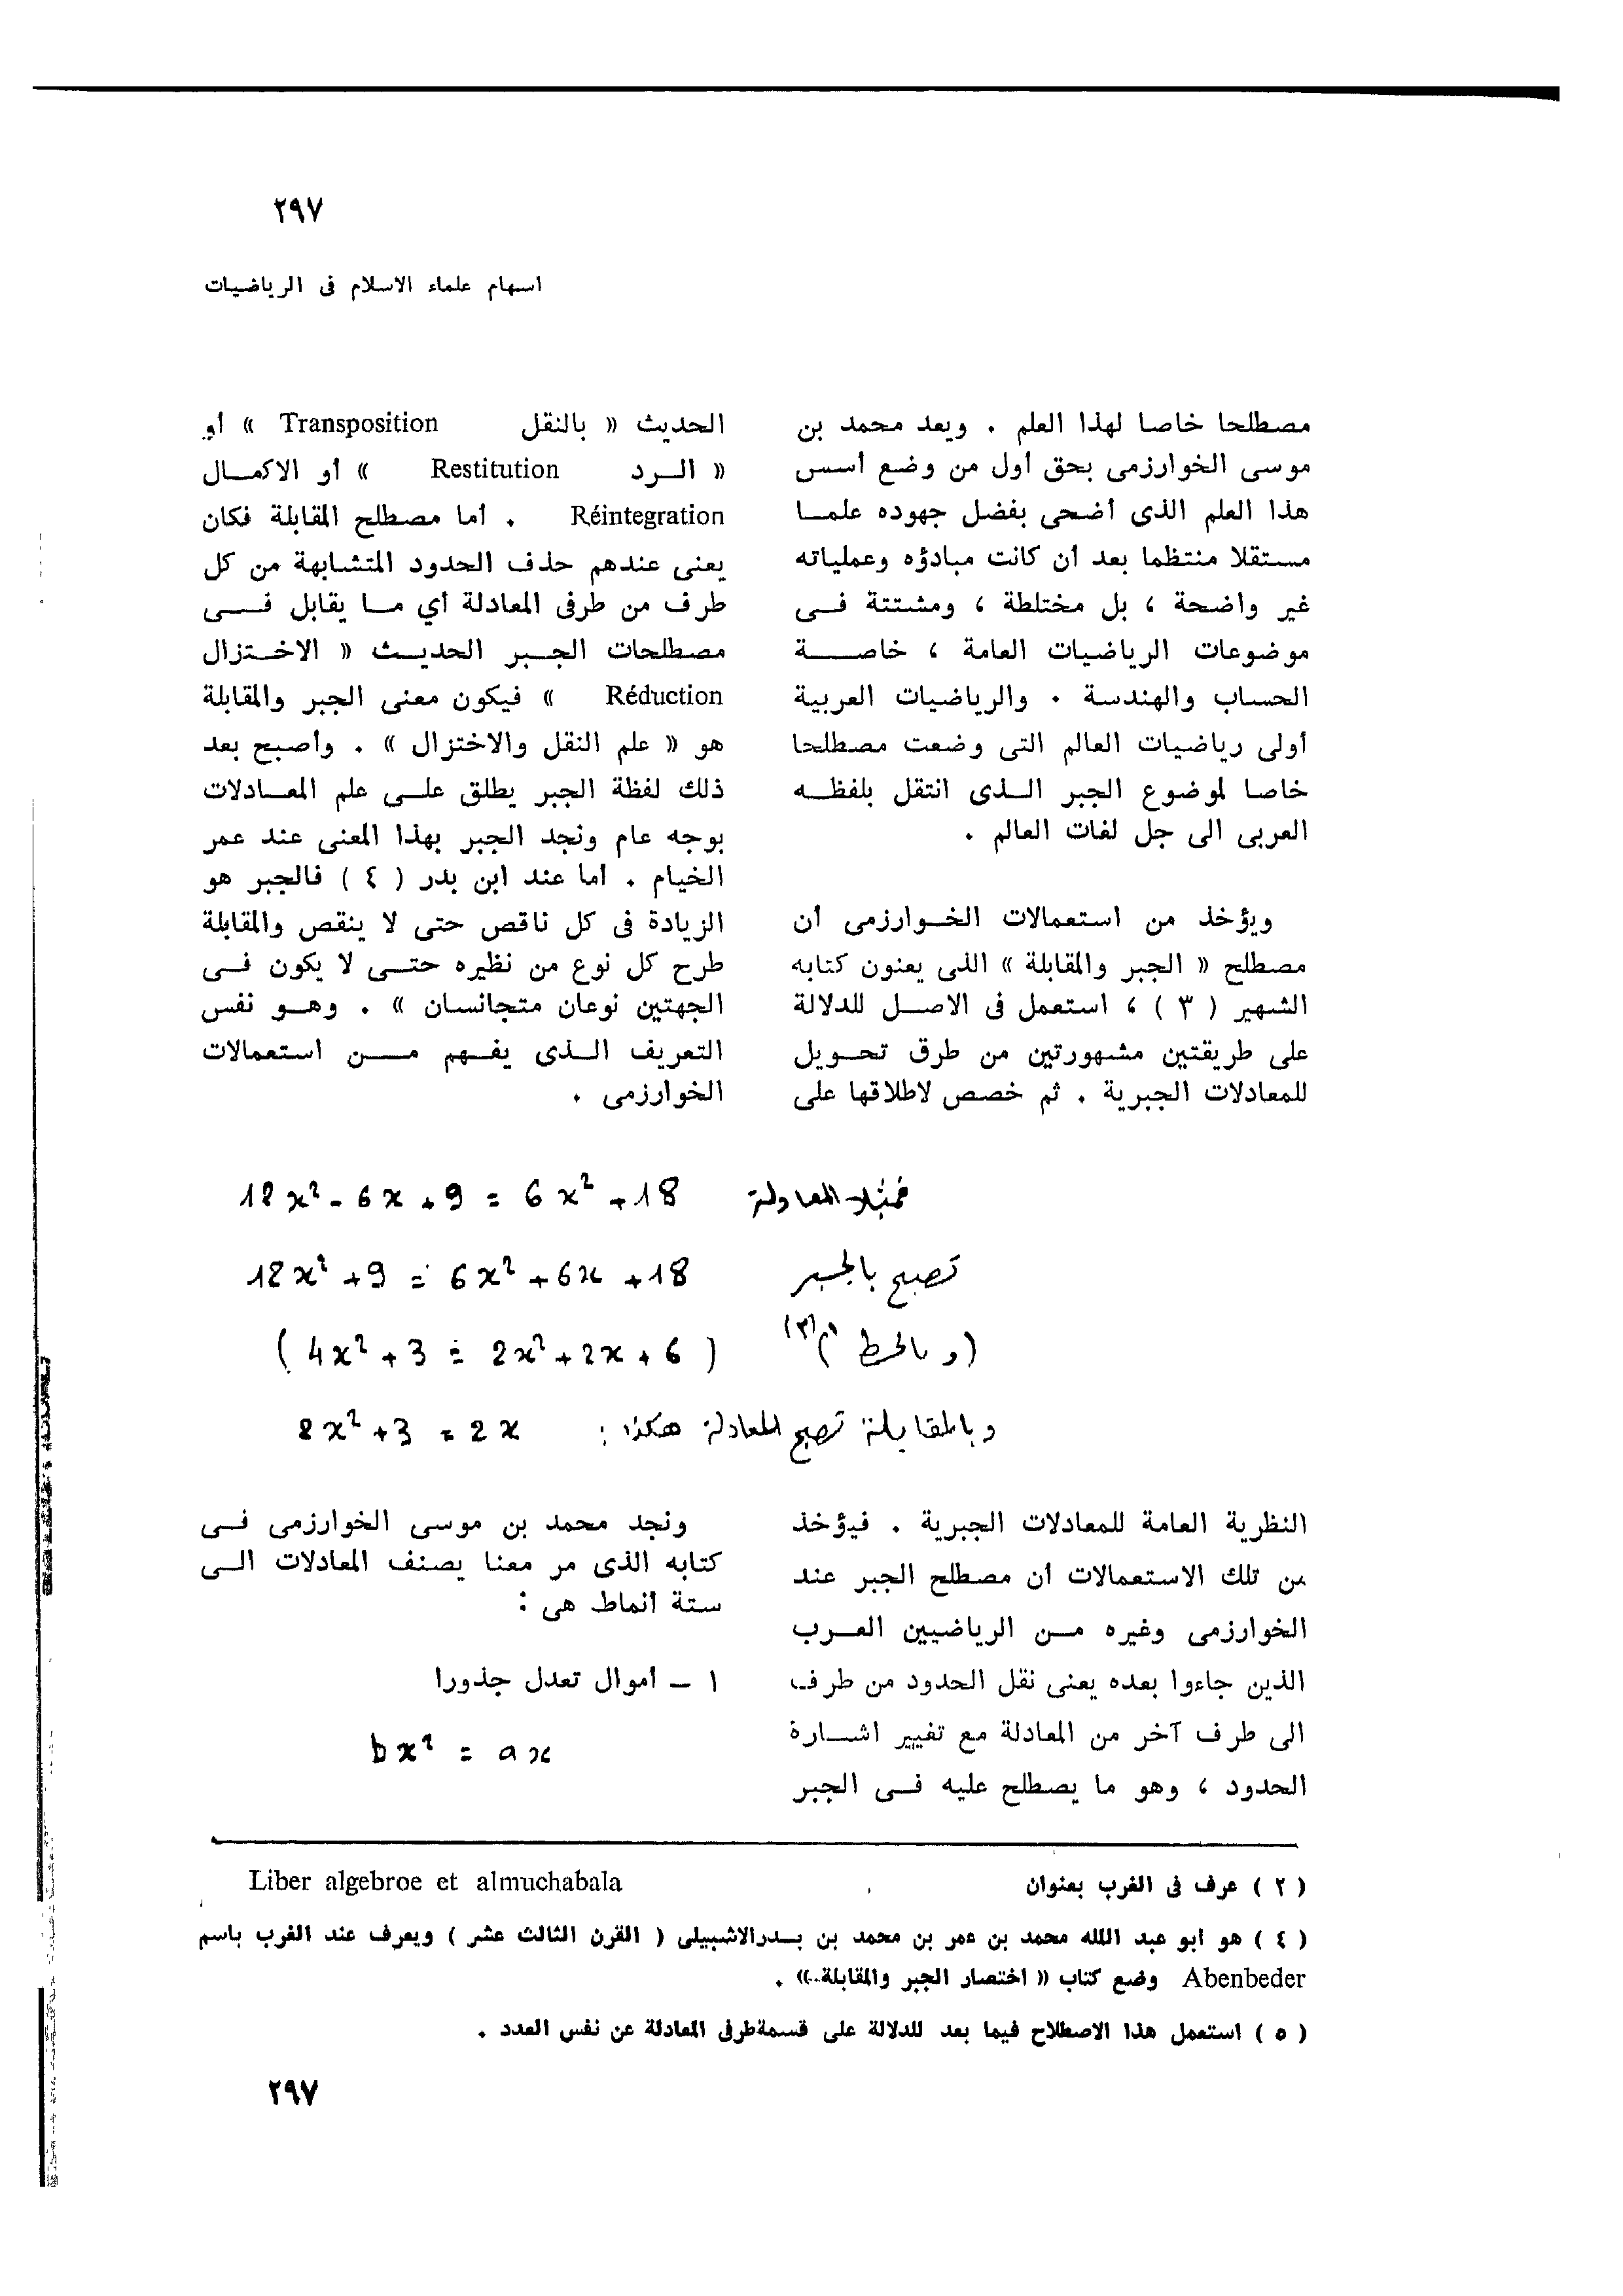 ٢٩٧
اسهام علماء الاسلام فى الرياضيات
مصطلحا خاصا لهذا العلم . ويعد محمد بن
موسى الخوارزمى بحق أول من وضع أسس
هذا العلم الذى أضحى بفضل جهوده علمـا
مستقلا منتظما بعد أن كانت مبادؤه وعملياته
غير واضحة ، بل مختلطة ، ومشتتة فـى
موضوعات الرياضيات العامة ، خاصـة
الحساب والهندسة . والرياضيات العربية
أولى رياضيات العالم التى وضعت مصطلحا
خاصا لموضوع الجبر الـذى انتقل بلفظـه
العربى الى جل لغات العالم .
ويؤخذ من استعمالات الخـوارزمى أن
مصطلح « الجبر والمقابلة » الذى يعنون كتابه
الشهير ( ٣ ) ، استعمل فى الاصـل للدلالة
على طريقتين مشهورتين من طرق تحـويل
للمعادلات الجبرية . ثم خصص لاطلاقها على
الحديث « بالنقل Transposition » أو
« الـرد Restitution » أو الاكمـال
Réintegration . أما مصطلح المقابلة فكان
يعنى عندهم حذف الحدود المتشابهة من كل
طرف من طرفى المعادلة أي مـا يقابل فـى
مصطلحات الجـبر الحديـث « الاخـتزال
Réduction » فيكون معنى الجبر والمقابلة
هو « علم النقل والاختزال » . وأصبح بعد
ذلك لفظة الجبر يطلق علـى علم المعـادلات
بوجه عام ونجد الجبر بهذا المعنى عند عمر
الخيام . اما عند ابن بدر ( ٤ ) فالجبر هو
الزيادة فى كل ناقص حتى لا ينقص والمقابلة
طرح كل نوع من نظيره حتـى لا يكون فـى
الجهتين نوعان متجانسان » . وهـو نفس
التعريف الـذى يفـهم مـن استعمالات
الخوارزمى .
فمثلا المعادلة 12x² - 6x + 9 = 6x² + 18
تصبح بالجبر 12x² + 9 = 6x² + 6x + 18
(وبالحط)(٣) ( 4x² + 3 = 2x² + 2x + 6 )
وبالمقابلة تصبح المعادلة هكذا : 2x² + 3 = 2x
النظرية العامة للمعادلات الجبرية . فيؤخذ
من تلك الاستعمالات أن مصطلح الجبر عند
الخوارزمى وغيره مـن الرياضيين العـرب
الذين جاءوا بعده يعنى نقل الحدود من طرف
الى طرف آخر من المعادلة مع تغيير اشـارة
الحدود ، وهو ما يصطلح عليه فـى الجبر
ونجد محمد بن موسى الخوارزمى فـى
كتابه الذى مر معنا يصنف المعادلات الـى
ستة انماط هى :
١ – أموال تعدل جذورا
bx² = ax
( ٢ ) عرف فى الغرب بعنوان Liber algebroe et almuchabala
( ٤ ) هو ابو عبد الله محمد بن عمر بن محمد بن بـدرالاشبيلى ( القرن الثالث عشر ) ويعرف عند الغرب باسم
Abenbeder وضع كتاب « اختصار الجبر والمقابلة..» .
( ٥ ) استعمل هذا الاصطلاح فيما بعد للدلالة على قسمةطرفى المعادلة عن نفس العدد .
٢٩٧